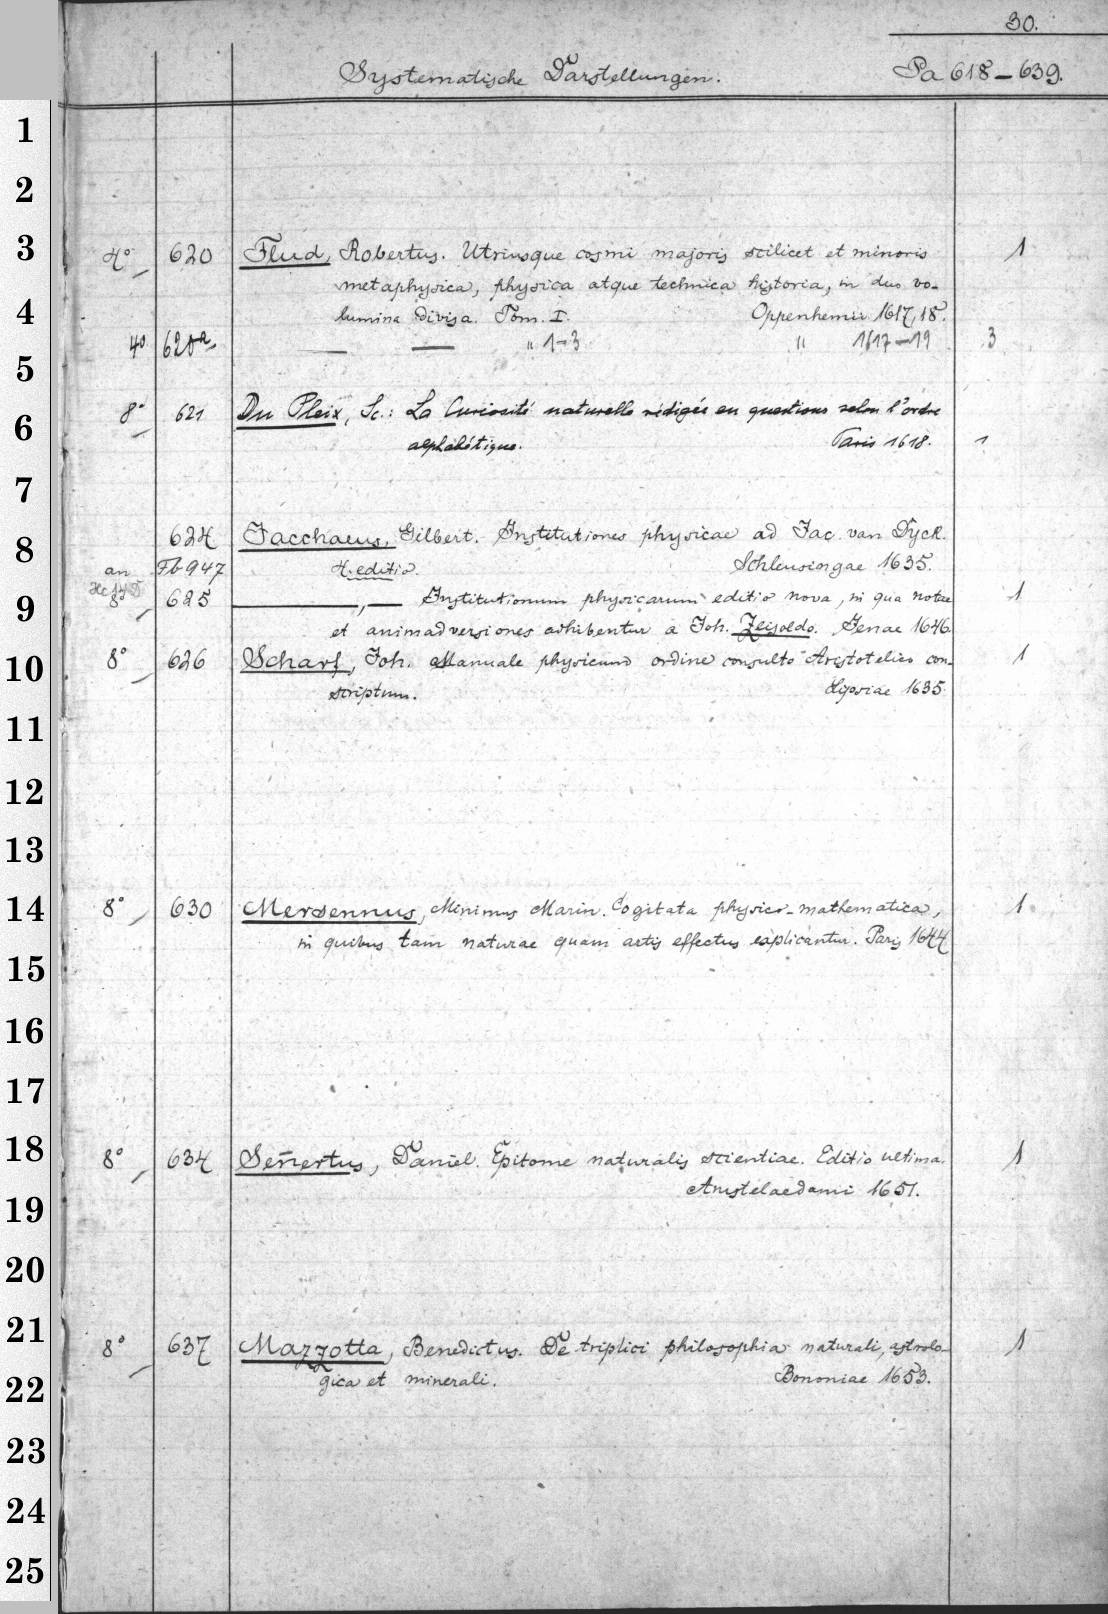 30.
Systematische Darstellungen. Pa 618-639.
1
2
3
4° 620 Flud, Robertus. Utriusque cosmi majoris scilicet et minoris 1
metaphysica, physica atque technica historia, in duo vo-
4
lumina divisa. Tom. I. Oppenhemii 1617,18.
4° 620a — — " 1-3 " 1617-19 3
5
8° 621 Du Pleix, Sc.: La Curiosité naturelle rédigée en questions selon l'ordre
6
alphabétique. Paris 1618. 1
7
624 Jacchaeus, Gilbert. Institutiones physicae ad Jac. van Dyck.
8
an Fb 947 editio. Schleusingae 1635.
8° 625 —, — Institutionum physicarum editio nova, in qua notae 1
9
et animadversiones adhibentur a Joh. Zeisoldo. Jenae 1646.
8° 626 Scharf, Joh. Manuale physicum ordine consulto Aristotelico con- 1
10
scriptum. Lipsiae 1635.
11
12
13
14
8° 630 Mersennus, Minimus Marin. Cogitata physico-mathematica, 1
in quibus tam naturae quam artis effectus explicantur. Paris 1644
15
16
17
18
8° 634 Senertus, Daniel. Epitome naturalis scientiae. Editio ultima. 1
Amstelaedami 1651.
19
20
21
8° 637 Mazzotta, Benedictus. De triplici philosophia naturali, astrolo- 1
gica et minerali. Bononiae 1653.
22
23
24
25